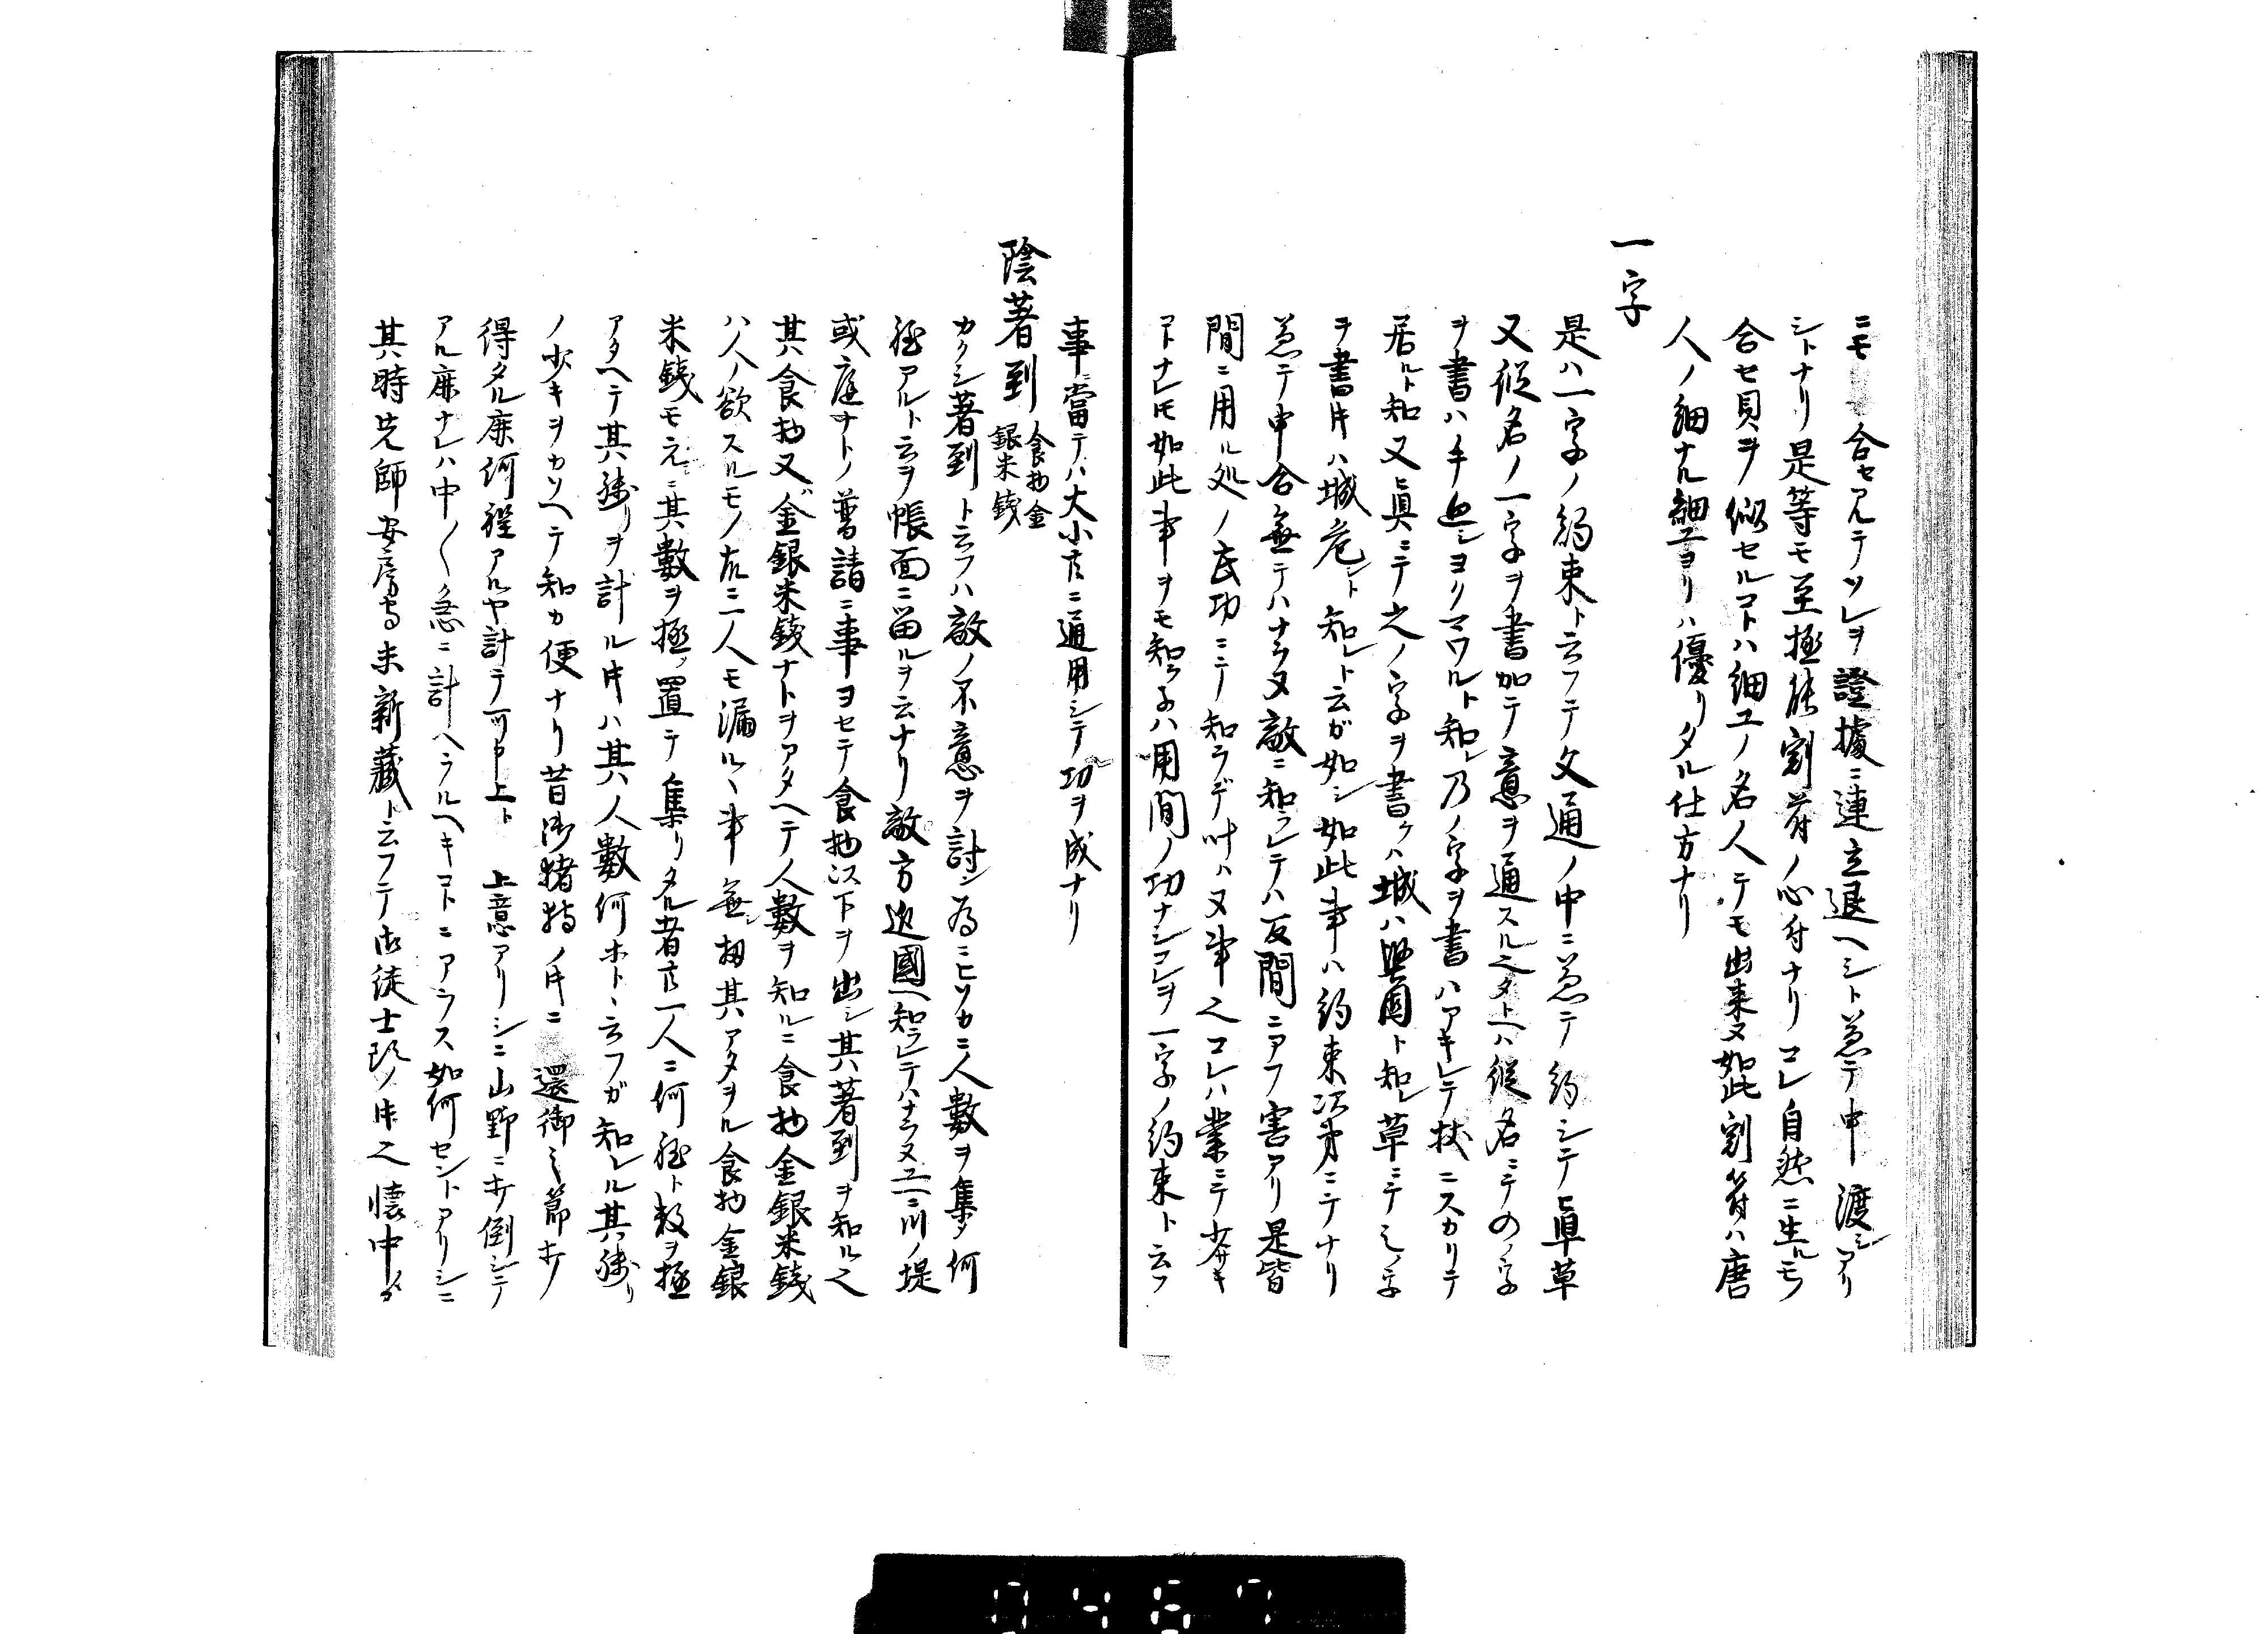 ニモ合セアルテソレヲ證據ニ連立退ヘシト兼テ申渡シアリ
シトナリ是等モ至極能割符ノ心付ナリコレ自然ニ生ルモノ
合セ貝ヲ似セルコトハ細工ノ名人テモ出来ヌ如此割符ハ唐
人ノ細ナル細工ヨリハ優リタル仕方ナリ
一字
是ハ一字ノ約束ト云フテ文通ノ中ニ兼テ約シテ真草
又従名ノ一字ヲ書加テ意ヲ通スル之タトヘハ従名ニテのノ字
ヲ書ハ手延シヨリマワルト知レ乃ノ字ヲ書ハアキレテ扶ニスカリテ
居ルト知又真ニテ之ノ字ヲ書ケハ城ハ堅固ト知レ草ニテ之ノ字
ヲ書片ハ城危シト知レト云ガ如シ如此事ハ約束次第ニテナリ
兼テ申合無テハナラヌ敵ニ知ラレテハ反間ニアフ害アリ是皆
間ニ用ル処ノ民功ニテ知ラデ叶ハヌ事之コレハ業ニテ少キ
アトナレ𪜈如此事ヲモ知ラ子ハ用間ノ功ナシコレヲ一字ノ約束ト云フ
事ニ當テハ大小共ニ通用シテ功ヲ成ナリ
陰著到 食物金銀米銭
カクシ著到ト云フハ敵ノ不意ヲ討ン為ニヒソカニ人數ヲ集メ何
程アルト云ヲ帳面ニ留ルヲ云ナリ敵方近國ヘ知ラレテハナラヌユヘニ川ノ堤
或庭ナトノ普請ニ事ヨセテ食物以下ヲ出シ其著到ヲ知ル之
其食物又ハ金銀米銭ナトヲアタヘテ人數ヲ知ルニ食物金銀米銭
ハ人ノ欲スルモノ故ニ一人モ漏ルヽ事無シ扨其アタヲル食物金銀
米銭モ元ニ其數ヲ極メ置テ集リタル者共一人ニ何程ト数ヲ極
アタヘテ其残リヲ計ル片ハ其人數何ホトヽ云フガ知レル其残リ
ノ少キヲカソヘテ知カ便ナリ昔御猪狩ノ片ニ還御之節ホノ
得タル鹿何程アルヤ計テ可申上ト 上意アリシニ山野ニホノ倒シテ
アル鹿ナレハ中〱急ニ計ヘラルヘキコトニアラス如何セントアリシニ
其時先師安房守未新蔵ト云フテ御徒士頭ノ片之懐中メカ